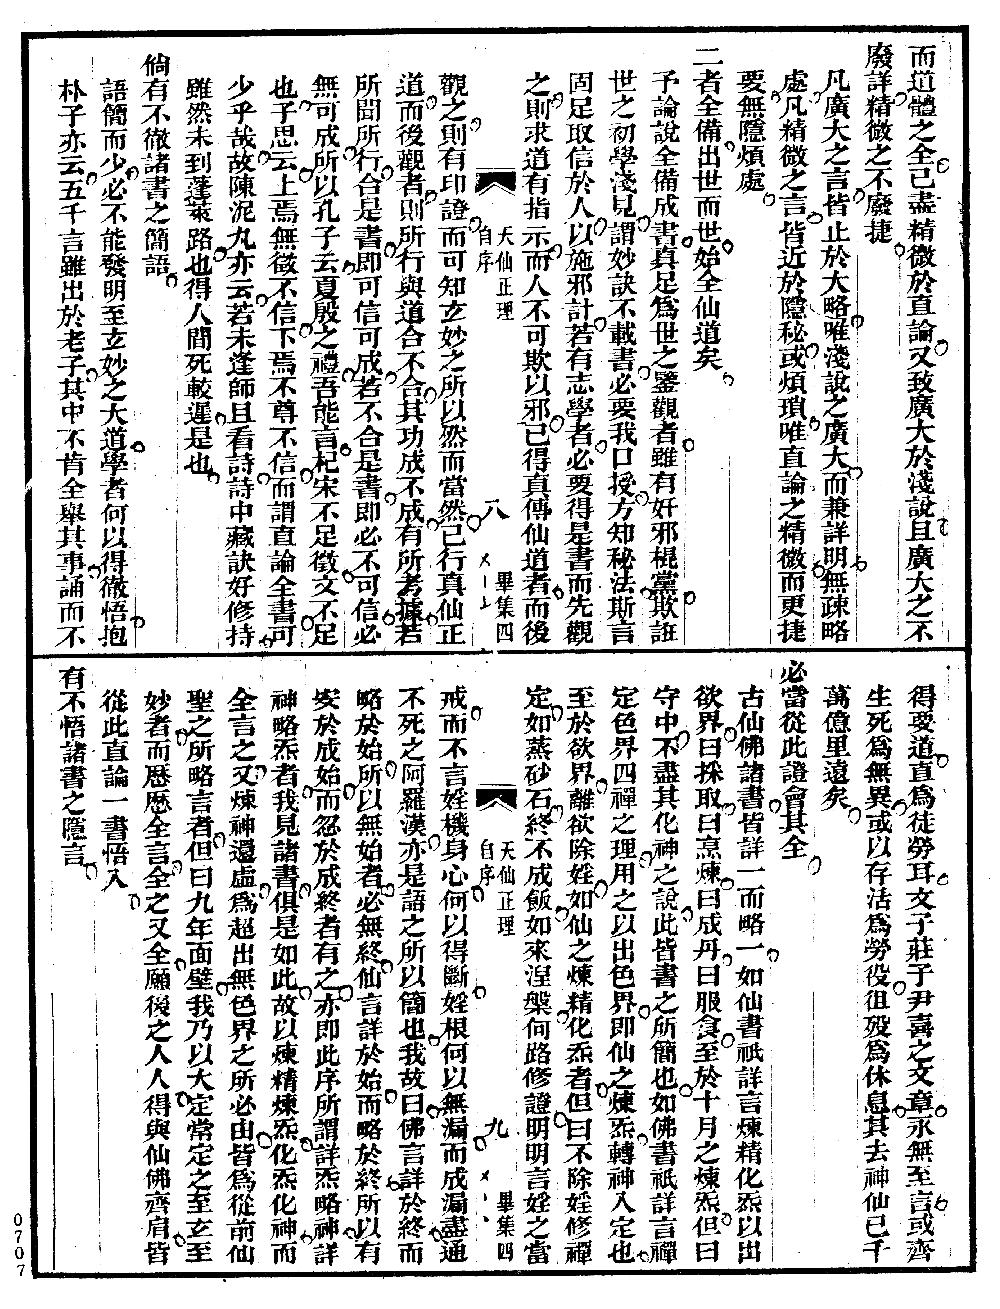 而道體之全已盡精微於直論又致廣大於淺說且廣大之不
廢詳精微之不廢捷
凡廣大之言皆止於大略唯淺說之廣大而兼詳明無疎略
處凡精微之言皆近於隱秘或煩瑣唯直論之精微而更捷
要無隱煩處
二者全備出世而世始全仙道矣
予論說全備成書真足為世之鑒觀者雖有奸邪棍黨欺誑
世之初學淺見謂妙訣不載書必要我口授方知秘法斯言
固足取信於人以施邪計若有志學者必要得是書而先觀
之則求道有指示而人不可欺以邪已得真傳仙道者而後
天仙正理
自序
八
畢集四
觀之則有印證而可知玄妙之所以然而當然已行真仙正
道而後觀者則所行與道合不合其功成不成有所考據若
所聞所行合是書即可信可成若不合是書即必不可信必
無可成所以孔子云夏殷之禮吾能言杞宋不足徵文不足
也子思云上焉無徵不信下焉不尊不信而謂直論全書可
少乎哉故陳泥丸亦云若未逢師且看詩詩中藏訣好修持
雖然未到蓬萊路也得人間死較遲是也
倘有不徹諸書之簡語
語簡而少必不能發明至玄妙之大道學者何以得徹悟抱
朴子亦云五千言雖出於老子其中不肯全舉其事誦而不
得要道直為徒勞耳文子莊子尹喜之文章永無至言或齊
生死為無異或以存活為勞役徂歿為休息其去神仙已千
萬億里遠矣
必當從此證會其全
古仙佛諸書皆詳一而略一如仙書祇詳言煉精化炁以出
欲界曰採取曰烹煉曰成丹曰服食至於十月之煉炁但曰
守中不盡其化神之說此皆書之所簡也如佛書祇詳言禪
定色界四禪之理用之以出色界即仙之煉炁轉神入定也
至於欲界離欲除婬如仙之煉精化炁者但曰不除婬修禪
定如蒸砂石終不成飯如來涅槃何路修證明明言婬之當
天仙正理
自序
九
畢集四
戒而不言婬機身心何以得斷婬根何以無漏而成漏盡通
不死之阿羅漢亦是語之所以簡也我故曰佛言詳於終而
略於始所以無始者必無終仙言詳於始而略於終所以有
安於成始而忽於成終者有之亦即此序所謂詳炁略神詳
神略炁者我見諸書俱是如此故以煉精煉炁化炁化神而
全言之又煉神還虛為超出無色界之所必由皆為從前仙
聖之所略言者但曰九年面壁我乃以大定常定之至玄至
妙者而歷歷全言之全之又全願後之人人得與仙佛齊肩皆
從此直論一書悟入
有不悟諸書之隱言
0707